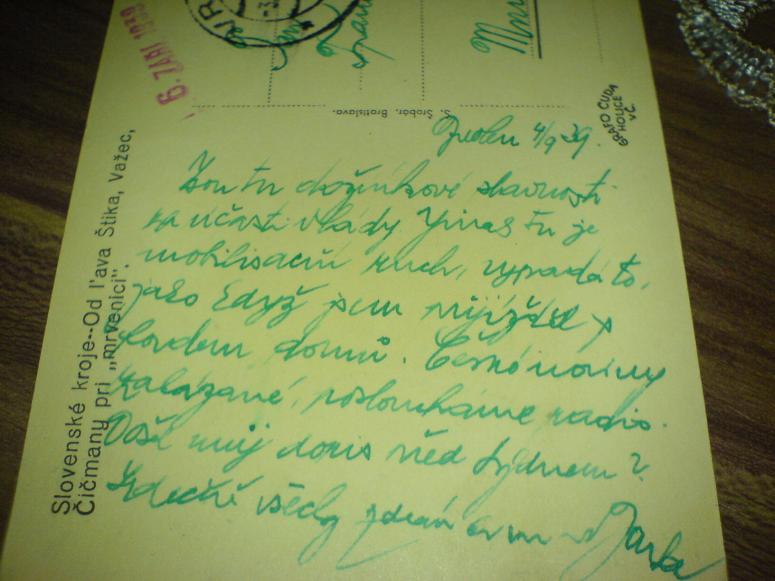 6. ZÁŘÍ 1939
S. Šrobár, Bratislava.
GRAFO ČUDA
HOLICE
VČ.
Slovenské kroje--Od ľava Štika, Važec,
Čičmany pri „mrvenici".
Zvolen 4/9 39.
Jsou tu dožínkové slavnosti
za účasti vlády. Jinak tu je
mobilisační ruch, vypadá to,
jako když jsem
domů. České noviny
zakázané, posloucháme radio.
Došel můj dopis před týdnem?
Srdečně všechny zdraví Jarka